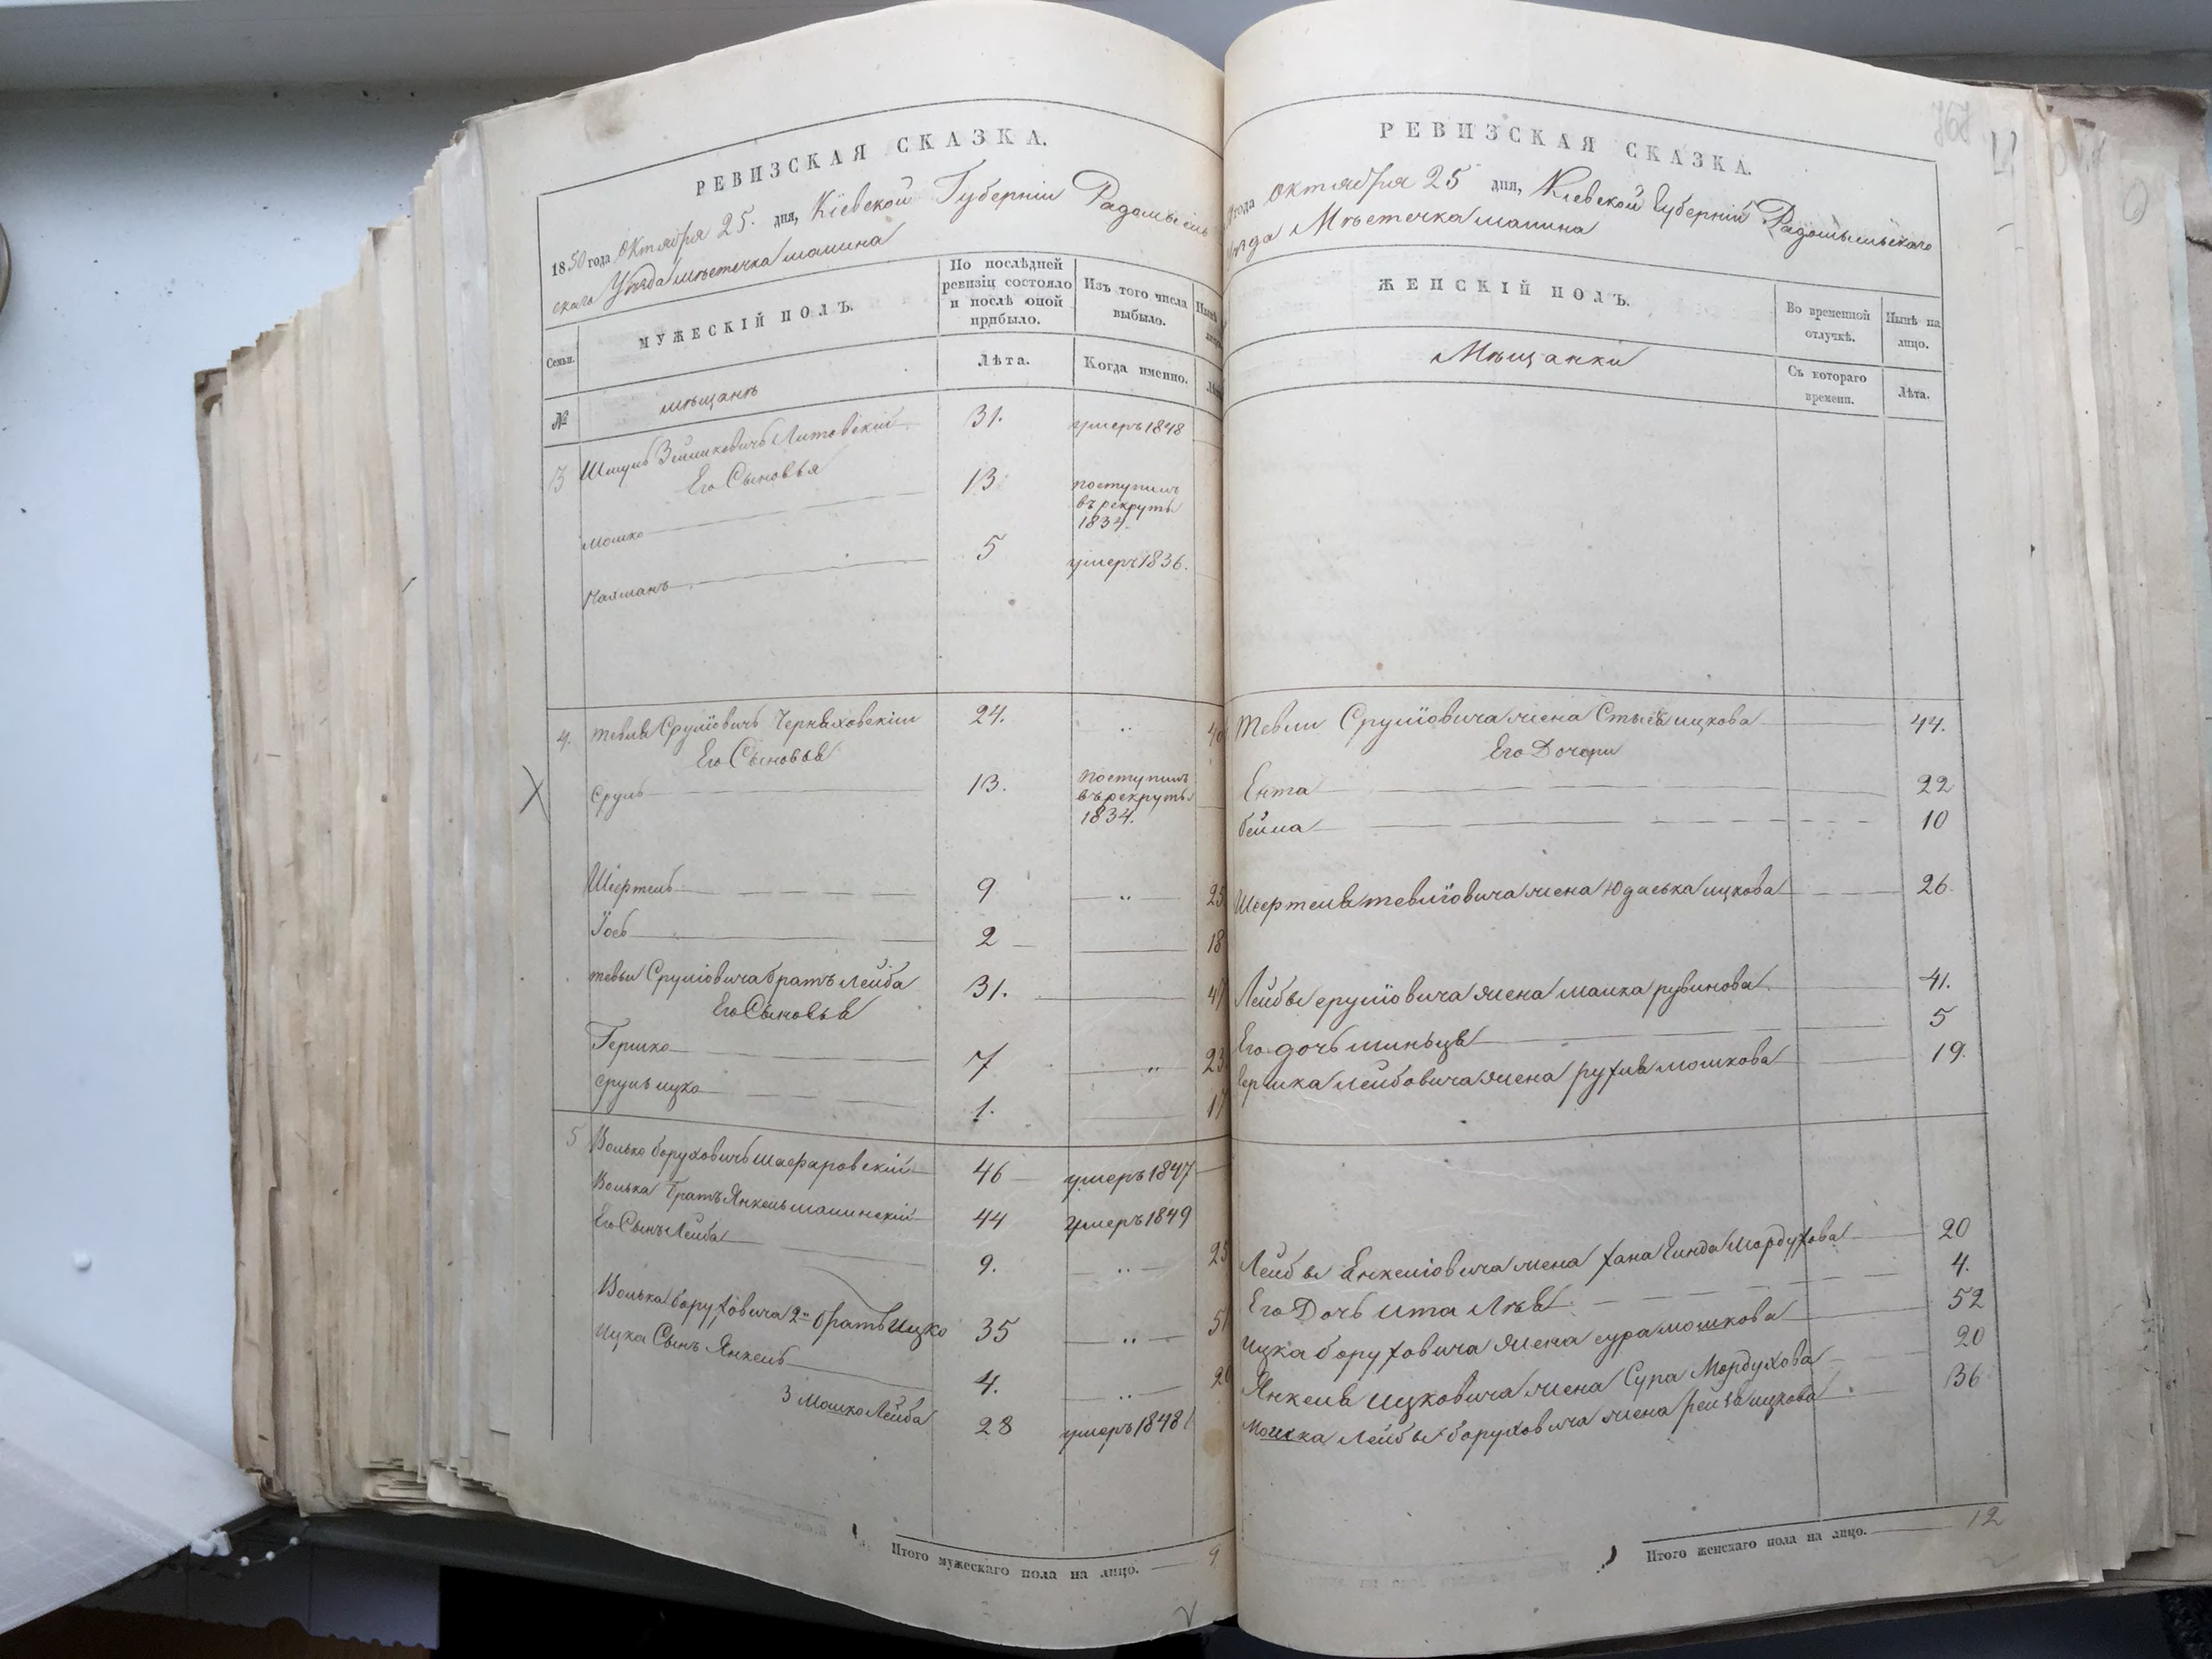 РЕВИЗСКАЯ СКАЗКА.
1850 года Октября 25. дня, Кіевской Губерніи Радомысль
скаго Уѣзда мѣстечка малина
Семьи.
МУЖЕСКІЙ ПОЛЪ.
По послѣдней ревизіи состояло и послѣ оной прибыло.
Изъ того числа выбыло.
№
мѣщанъ
Лѣта.
Когда именно.
3 Шмуль Зейликовичъ Литовскій 31. умеръ 1848
Его Сыновья
Мошко 13 поступилъ
въ рекруты
1834.
Нахманъ 5 умеръ 1836.
4. Тевль Срулiовичъ Черняховскій 24. 40
Его Сыновья
Сруль 13. поступилъ
въ рекруты
1834.
Шефтель 9 25
Іось 2 18
тевли Срулiовича братъ Лейба 31. 47
Его Сыновья
Гершко 7 23
Сруль ицко 1. 17
5 Волько боруховичъ шафаровскій 46 умеръ 1847
Волька братъ Янкель малинскій 44 умеръ 1849
Его Сынъ Лейба 9. 25
Волька боруховича 2й братъ Ицко 35 51
Ицка Сынъ Янкель 4. 20
3 Мошко Лейба 28 умеръ 1848
Итого мужескаго пола на лицо. 9
РЕВИЗСКАЯ СКАЗКА.
года Октября 25 дня, Кіевской Губерніи Радомысльскаго
Уѣзда Мѣстечка малина
ЖЕНСКІЙ ПОЛЪ.
Во временной отлучкѣ.
Нынѣ на лицо.
Мѣщанки
Съ котораго времени.
Лѣта.
Тевли Срулiовича жена Стыся ицкова 44.
Его Дочери
Ента 22
бейла 10
Шефтеля тевлiовича жена Юдаська ицкова 26.
Лейбы срулiовича жена малка рувинова 41.
Его дочь миньця 5
Гершка лейбовича жена рухля мошкова 19.
Лейбы Янкелiовича жена хана Гинда Мордухова 20
Его Дочь ита Лѣя 4.
Ицка боруховича жена сура мошкова 52
Янкеля Ицковича жена Сура Мордухова 20
Мошка Лейбы боруховича жена рейзя ицкова 36
Итого женскаго пола на лицо. 12